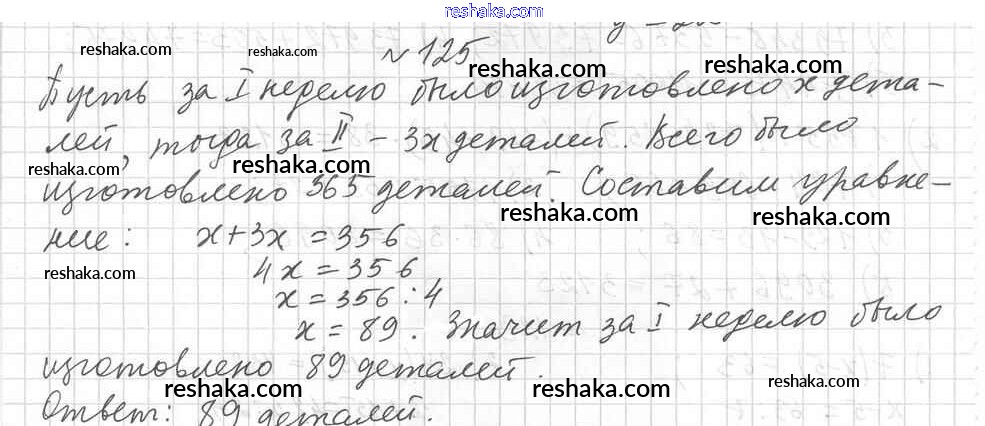 reshaka.com
№ 125
Пусть за I неделю было изготовлено x дета-
лей, тогда за II - 3x деталей. Всего было
изготовлено 365 деталей. Составим уравне-
ние: x+3x = 356
4x = 356
x = 356 : 4
x = 89. Значит за I неделю было
изготовлено 89 деталей.
Ответ: 89 деталей.
reshaka.com
reshaka.com
reshaka.com
reshaka.com
reshaka.com
reshaka.com
reshaka.com
reshaka.com
reshaka.com
reshaka.com
reshaka.com
reshaka.com